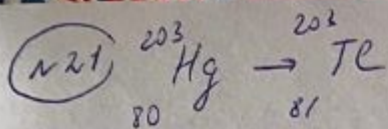 №21, ²⁰³₈₀Hg → ²⁰³₈₁Tl